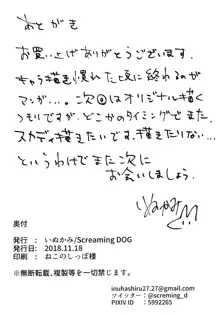 あとがき
お買い上げありがとうございます。
キャラ描き慣れた頃に終わるのが
マンガ…。次回はオリジナル描く
つもりですが、どこかのタイミングでまた
スカディ描きたいです。描きたいなっ…
というわけでまた次に
お会いしましょう。
いぬかみ
奥付
発行　：　いぬかみ/Screaming DOG
発行日：　2018.11.18
印刷　：　ねこのしっぽ様
※無断転載、複製等を一切禁じます。
inuhashiru27.27@gmail.com
ツイッター：@screming_d
PIXIV ID　：　5992265